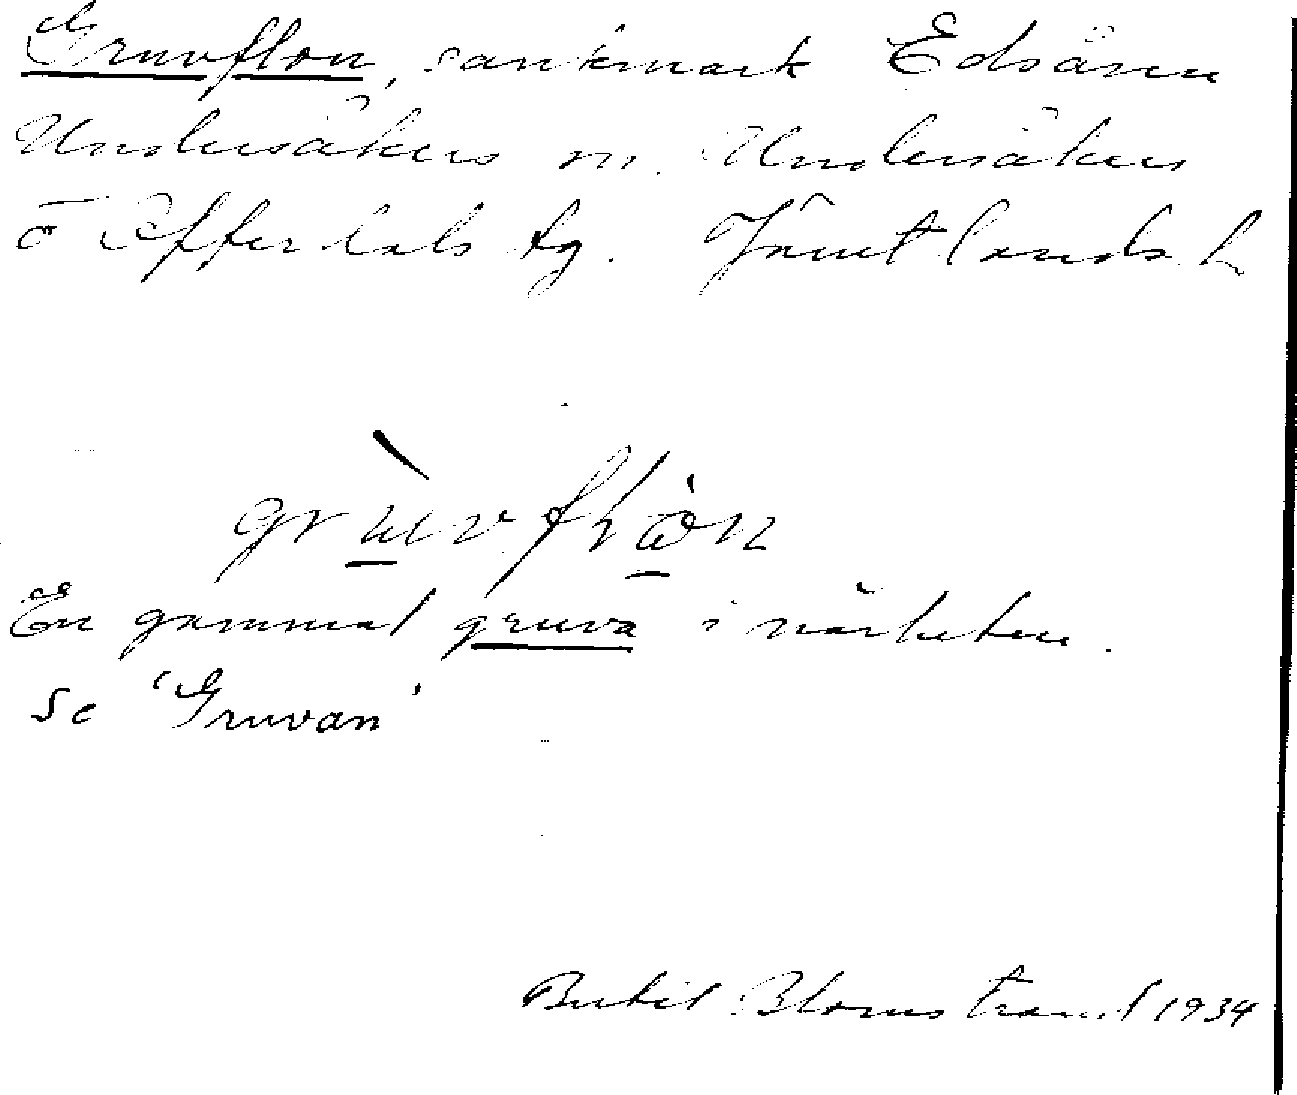 Gruvflon, sankmark Edsåsen
Undersåkers sn. Undersåkers
o Offerdals tg. Jämtlands L
grùvflòn
En gammal gruva i närheten.
Se 'Gruvan'
Bertil Blomstrand 1934